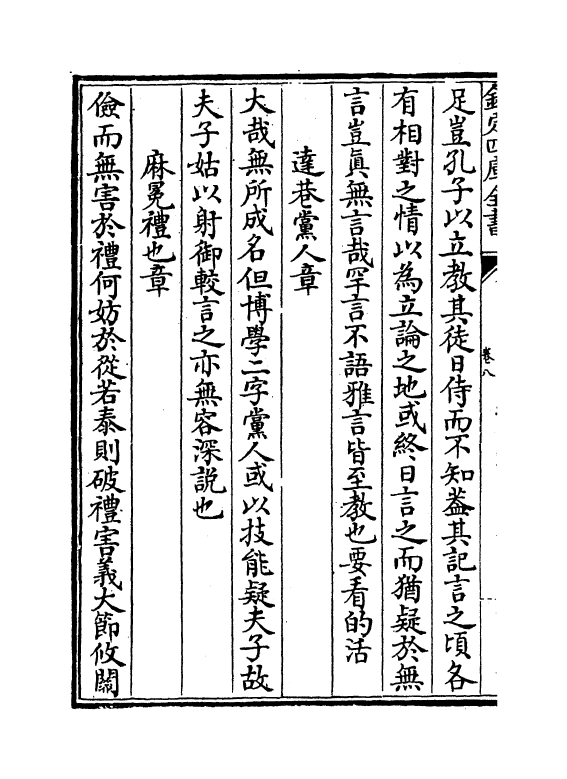 欽定四庫全書
卷八
足豈孔子以立教其徒日侍而不知蓋其記言之頃各
有相對之情以為立論之地或終日言之而猶疑於無
言豈眞無言哉罕言不語雅言皆至教也要看的活
達巷黨人章
大哉無所成名但博學二字黨人或以技能疑夫子故
夫子姑以射御較言之亦無容深說也
麻冕禮也章
儉而無害於禮何妨於從若泰則破禮害義大節攸關